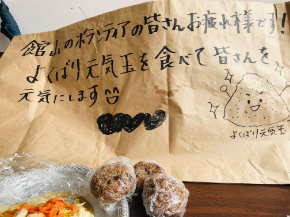 館山のボランティアの皆さんお疲れ様です!
よくばり元気玉を食べて皆さんを
元気にします
よくばり元気玉